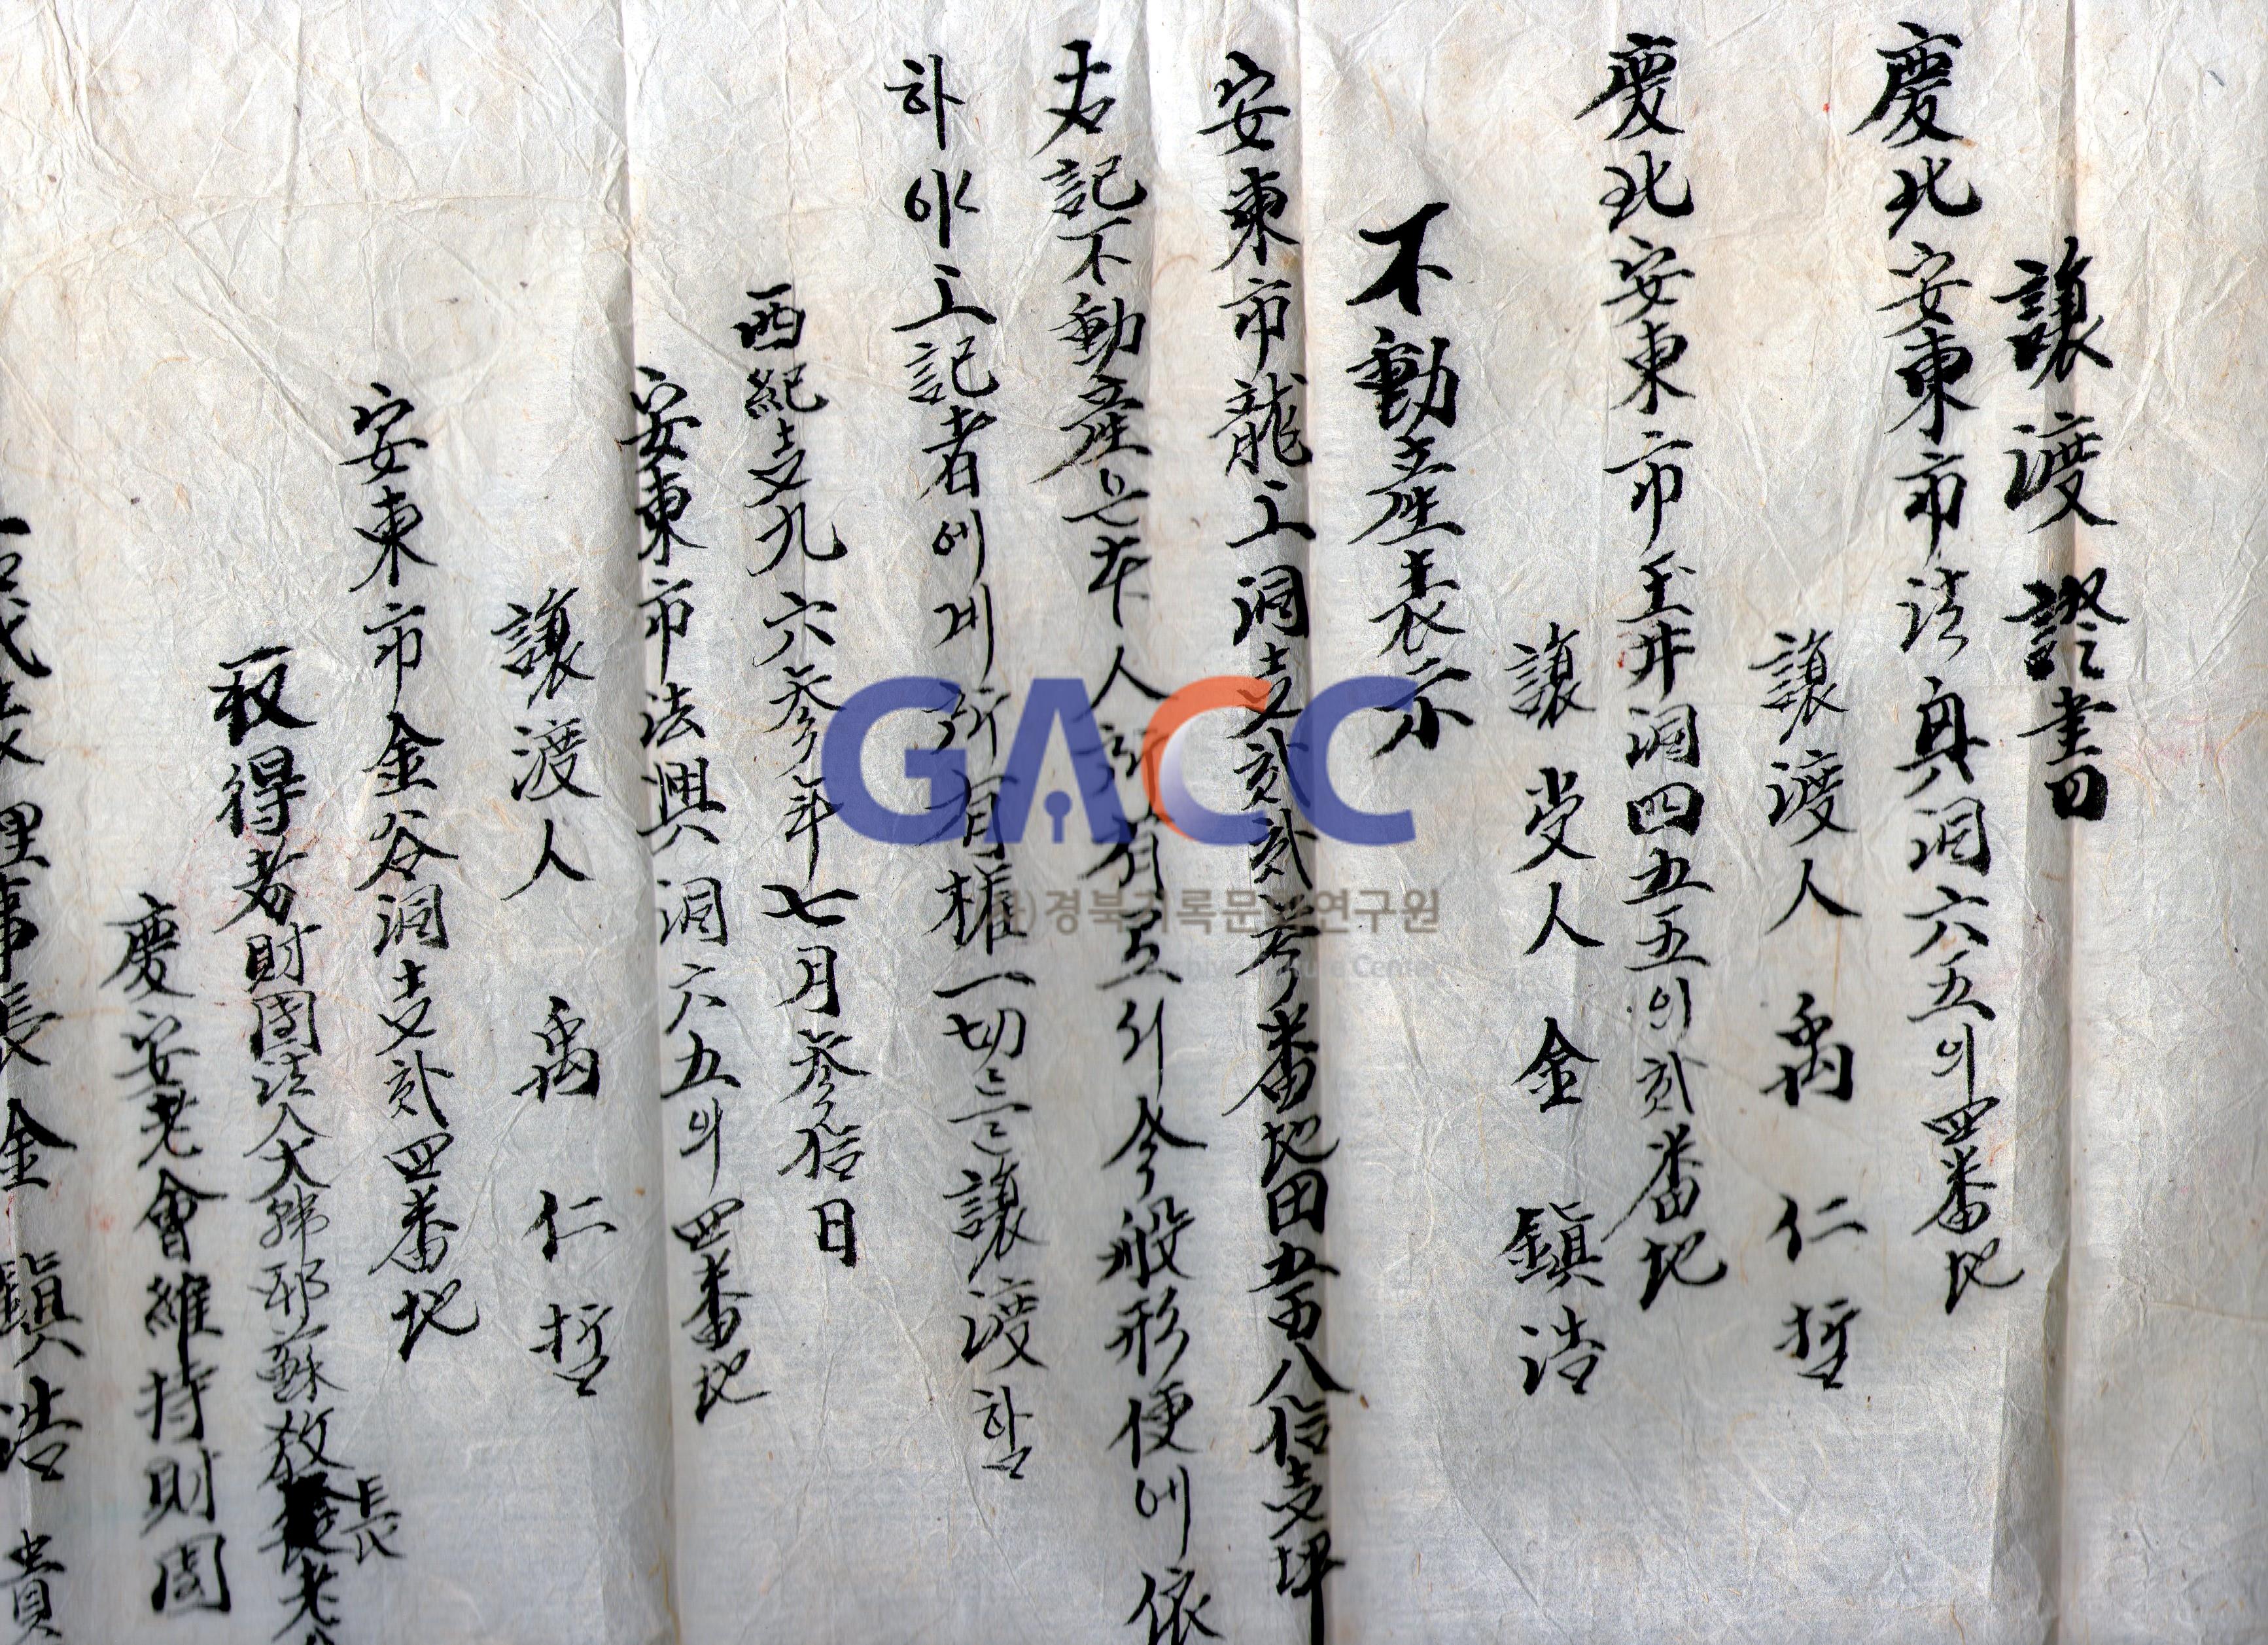 讓渡證書
慶北安東市法興洞六五의四番地
讓渡人 禹仁哲
慶北安東市玉井洞四五五의貳番地
讓受人 金鎭浩
不動産表示
安東市龍上洞壹貳貳貳番地田五百八拾壹坪
右記不動産은本人所有로서今般形便에依
하야上記者에게所有權一切를讓渡함
西紀壹九六參年七月參拾日
安東市法興洞六五의四番地
讓渡人 禹仁哲
安東市金谷洞壹貳四番地
取得者財團法人大韓耶蘇敎長老會
慶安老會維持財團
代表理事長金鎭浩 貴
GACC
경북기록문화연구원